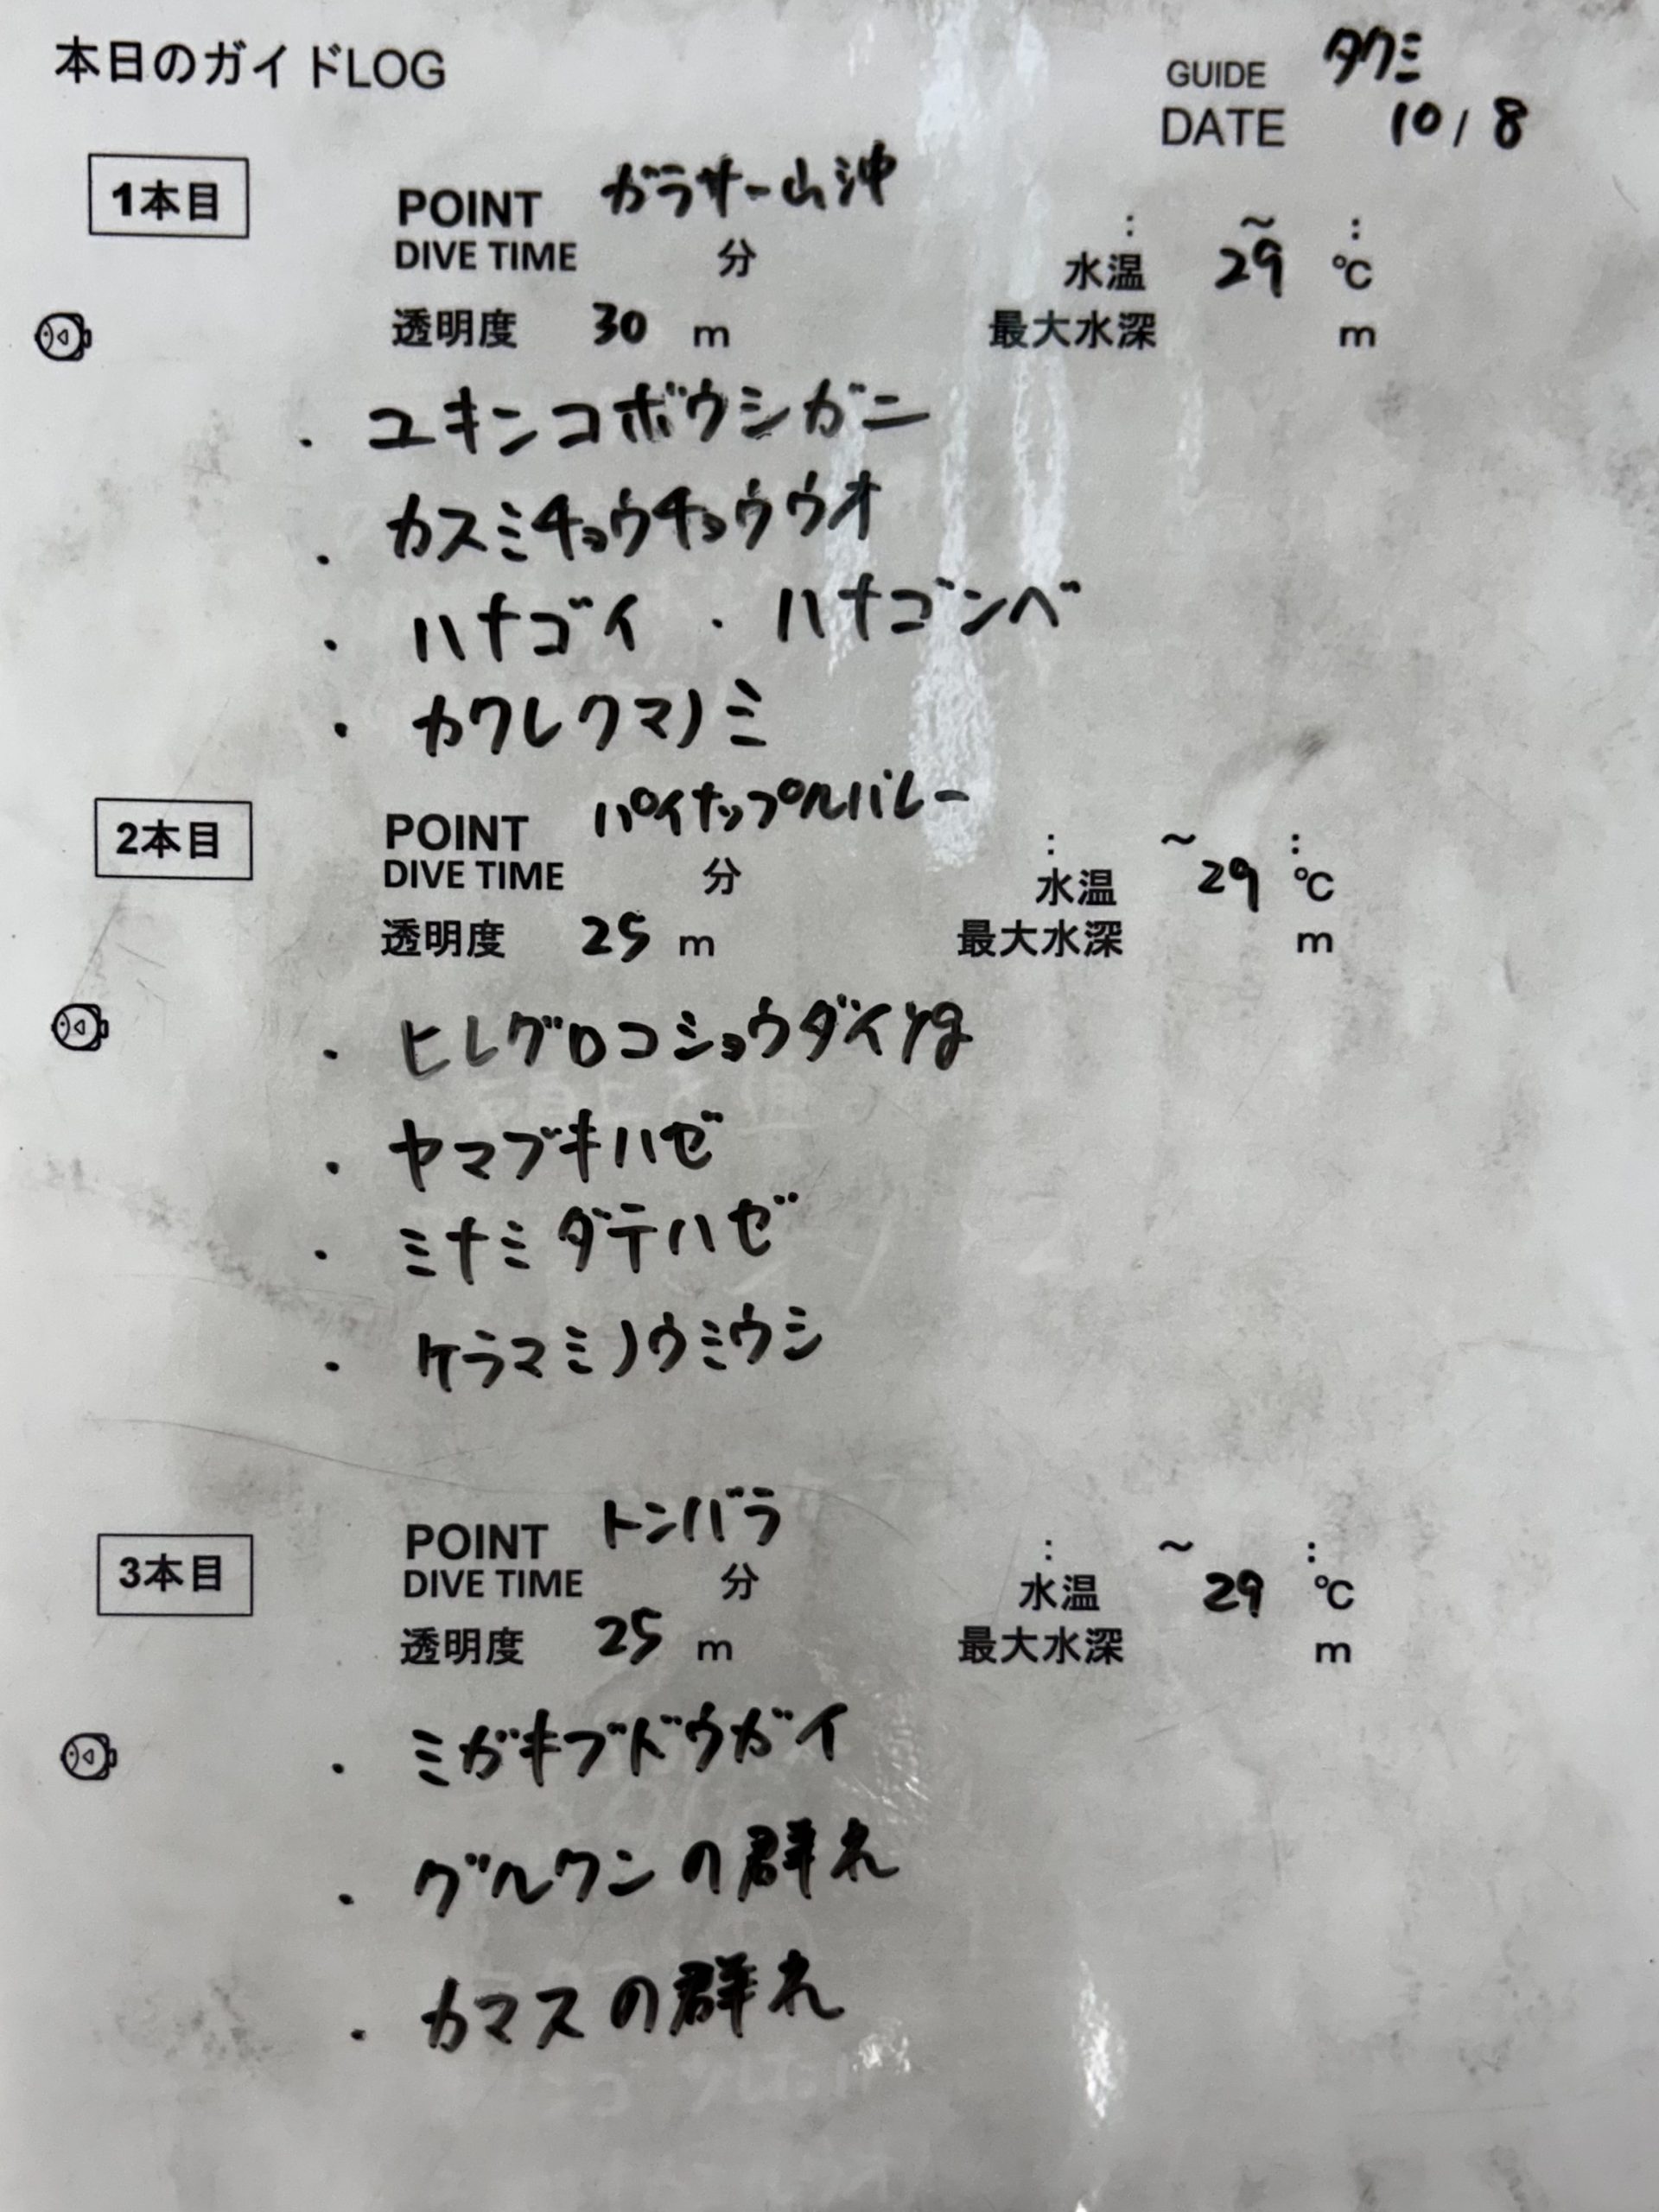 本日のガイドLOG
GUIDE タクミ
DATE 10/8
1本目
POINT ガラサー山沖
: ~ :
DIVE TIME 分 水温 29 ℃
透明度 30 m 最大水深 m
・ユキンコボウシガニ
・カスミチョウチョウウオ
・ハナゴイ・ハナゴンベ
・カクレクマノミ
2本目
POINT パイナップルバレー
: ~ :
DIVE TIME 分 水温 29 ℃
透明度 25 m 最大水深 m
・ヒレグロコショウダイyg
・ヤマブキハゼ
・ミナミダテハゼ
・ケラマミノウミウシ
3本目
POINT トンバラ
: ~ :
DIVE TIME 分 水温 29 ℃
透明度 25 m 最大水深 m
・ミガキブドウガイ
・グルクンの群れ
・カマスの群れ